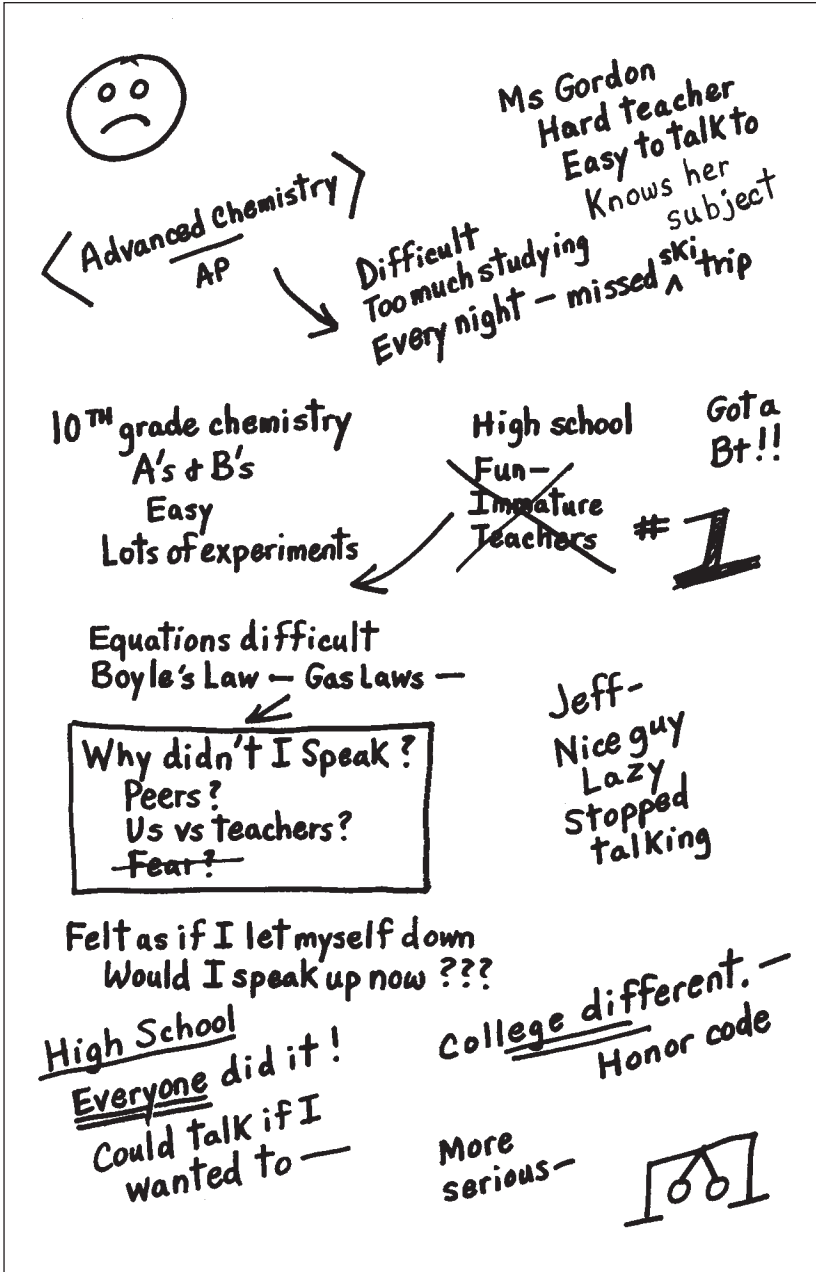 Ms Gordon
Hard teacher
Easy to talk to
Knows her
subject
Advanced Chemistry
AP
Difficult
Too much studying
Every night – missed ^ski trip
10TH grade chemistry
A's & B's
Easy
Lots of experiments
High school
Fun–
Immature
Teachers
Got a
B+!!
#1
Equations difficult
Boyle's Law – Gas Laws –
Why didn't I Speak?
Peers?
Us vs teachers?
Fear?
Jeff–
Nice guy
Lazy
Stopped
talking
Felt as if I let myself down
Would I speak up now ???
High School
Everyone did it!
Could talk if I
wanted to –
College different. –
Honor code
More
serious–